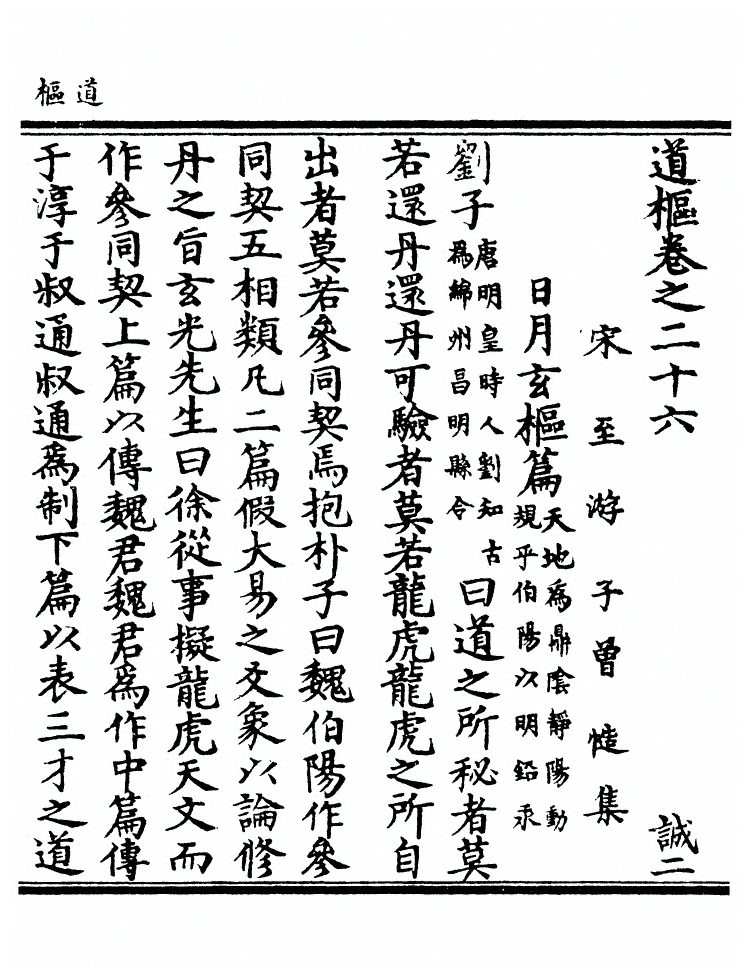 道樞
道樞卷之二十六 誠二
宋至游子曾慥集
日月玄樞篇天地為鼎陰靜陽動規乎伯陽以明鉛汞
劉子唐明皇時人劉知古為綿州昌明縣令曰道之所秘者莫
若還丹還丹可驗者莫若龍虎龍虎之所自
出者莫若參同契焉抱朴子曰魏伯陽作參
同契五相類凡二篇假大易之爻象以論修
丹之旨玄光先生曰徐從事擬龍虎天文而
作參同契上篇以傳魏君魏君為作中篇傳
于淳于叔通叔通為制下篇以表三才之道